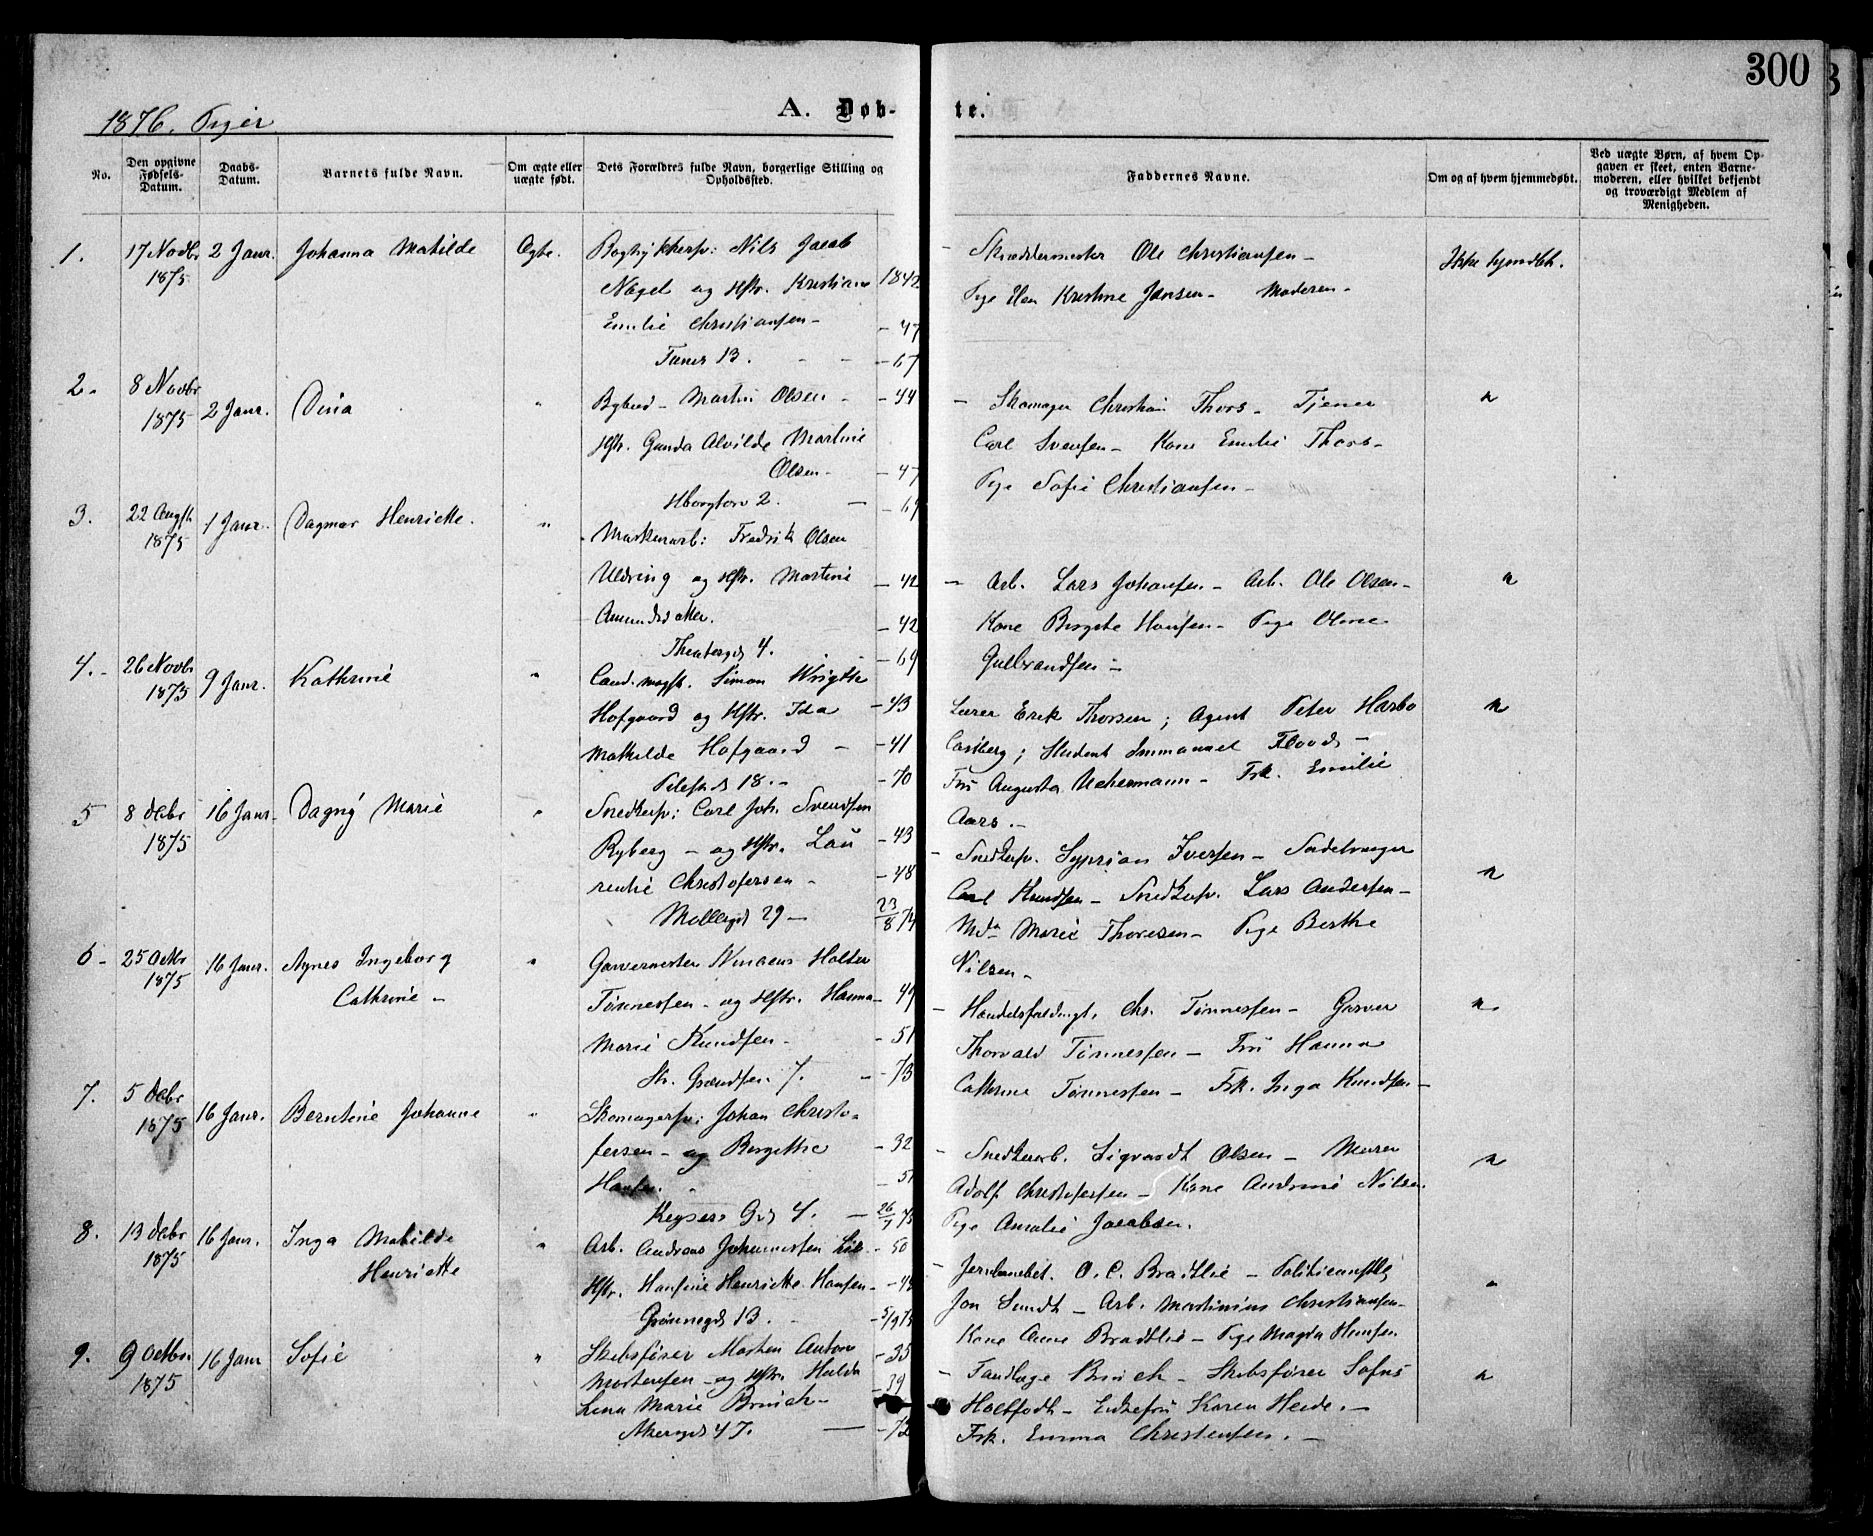 300
1876. Piger
A. Døb- te.
No.
Den opgivne Fødsels-Datum.
Daabs-Datum.
Barnets fulde Navn.
Om ægte eller uægte født.
Dets Forældres fulde Navn, borgerlige Stilling og Opholdssted.
Faddernes Navne.
Om og af hvem hjemmedøbt.
Ved uægte Børn, af hvem Opgaven er skeet, enten Barnemoderen, eller hvilket bekjendt og troværdigt Medlem af Menigheden.
1. 17 Novbr 1875 2 Janr. Johanna Matilde Ægte.
Nils Jacob
Nagel og Hstr. Kristiane 1842
Emilie Christiansen - - 47
13. - - - 67
- Skræddermester Ole Christiansen -
Pige Kristine Jansen - Moderen -
Ikke hjmdbt.
2. 8 Novbr 1875 2 Janr. Dina "
Bybud - Martin Olsen - - 44
Hstr. Gunda Alvilde Martine
Olsen - - 47
Hborgtorv 2. - - 69
- Skomager Christian Thors - Tjener
Carl Svensen - Kone Emilie Thors -
Pige Sofie Christiansen -
"
3. 22 Augst 1875 1 Janr. Dagmar Henriette. "
Fredrik Olsen
Uldring og Hstr. Martine - 42
Amundsdatter. - 42
Theatergd 4. - 69
- Arb. Lars Johansen - Arb. Ole Olsen -
Kone Birgite Hansen - Pige Oline
Gulbrandsen -
"
4. - 26 Novbr 1875 9 Janr. Kathrine "
Cand. magst. Simon Wrigth
Hofgaard og Hstr. Ida - 43
Mathilde Hofgaard - - 41
18. - - 70
Lærer Erik Thorsen; Agent Peter Harbo
Castberg; Student Immanuel Flood -
Fru Augusta Uchermann - Frk. Emilie
Aars. -
"
5 8 Decbr 1875 16 Janr. Dagny Marie "
Snedkersv: Carl Joh. Svendsen
Ryberg - og Hstr. Lau - 43
rentie Christofersen - - 48
Møllegd 29 - 23/8 74
- Snedkersv. Syprian Iversen - Sadelmager
Carl Knudsen - Snedkersv. Lars Andersen -
Mda Marie Thoresen - Pige Berthe
Nilsen -
"
6 - 25 Octbr 1875 16 Janr. Agnes Ingeborg Cathrine - "
Garvermester Holter
Tønnessen - og Hstr. Hanna - 49
Marie Knudsen - - 51
St. Grændsen. 7. - - 73
- Handelsfuldmgt. Chr. Tønnessen - Garver
Thorvald Tønnessen - Fru Hanna
Cathrine Tønnessen - Frk. Inga Knudsen -
"
7. 5 Decbr 1875 16 Janr. Berntine Johanne "
Skomagersv: Johan Christo-
fersen - og Birgithe - 32
Hansen. - 51
Keysers Gd 4. - 26/7 75
- Snedkerarb. Sigvardt Olsen - Murer
Adolf Christofersen - Kone Andrine Nilsen
Pige Amalie Jacobsen.
"
8. 13 Decbr 1875 16 Janr. Inga Matilde Henriette "
Arb. Andreas Johannessen - 50
Hstr. Hansine Henriette Hansen - - 45
Grønnegd 13. - - 5/9 75
- Jernbanebet. O. C. Bradtlie -
Jon Sundt - Arb. Martinius Christiansen -
Kone Anne Bradtlie - Pige Magda Hansen
"
9. 9 Octbr. 1875 16 Janr Sofie "
Skibsfører Morten Anton - 35
Mortensen - og Hstr. Hulda - 39
Lena Marie Brinch -
Akersgd 47. - - 72
- Tandlæge Brinch - Skibsfører Sofus
Holtfodt - Enkefru Karen Heide. -
Frk. Emma Christensen. -
"